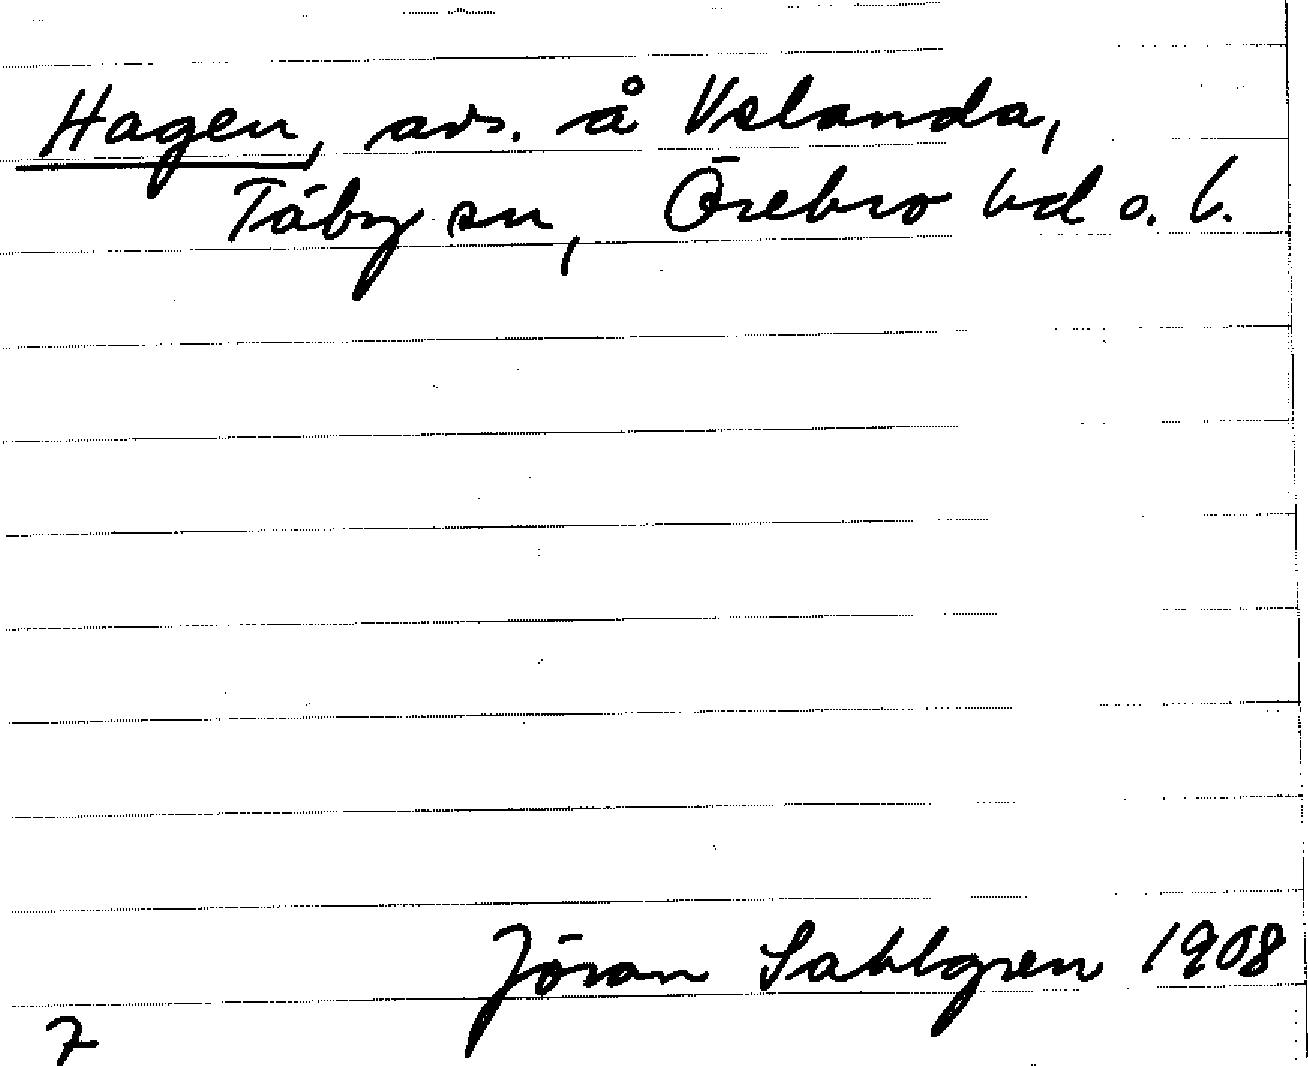 Hagen, avs. å Valanda,
Täby sn, Örebro hd o. l.
Jöran Sahlgren 1908
7